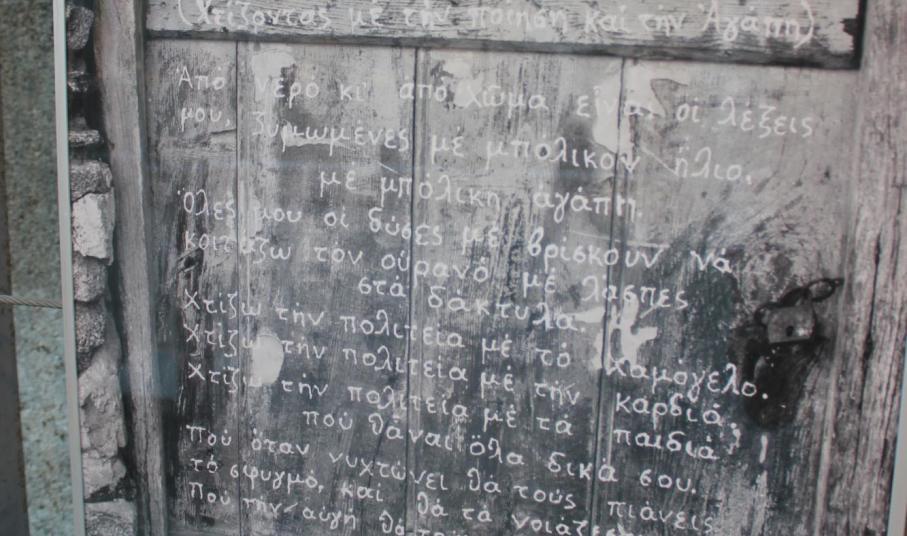 (Χτίζοντας μέ τήν ποίηση καί τήν Ἀγάπη)
Ἀπό νερό κι' ἀπό χῶμα εἶναι οἱ λέξεις
μου, ζυμωμένες μέ μπόλικον ἥλιο,
μέ μπόλικη ἀγάπη.
Ὅλες μου οἱ δύσες μέ βρίσκουν νά
κοιτάζω τόν οὐρανό μέ λάσπες
στά δάκτυλα.
Χτίζω τήν πολιτεία μέ τό χαμόγελο.
Χτίζω τήν πολιτεία μέ τήν καρδιά.
Χτίζω τήν πολιτεία μέ τά παιδιά
πού θἄναι ὅλα δικά σου.
Πού ὅταν νυχτώνει θά τούς πιάνεις
τό σφυγμό, καί θά τά νοιάζε
Πού τήν αὐγή θά